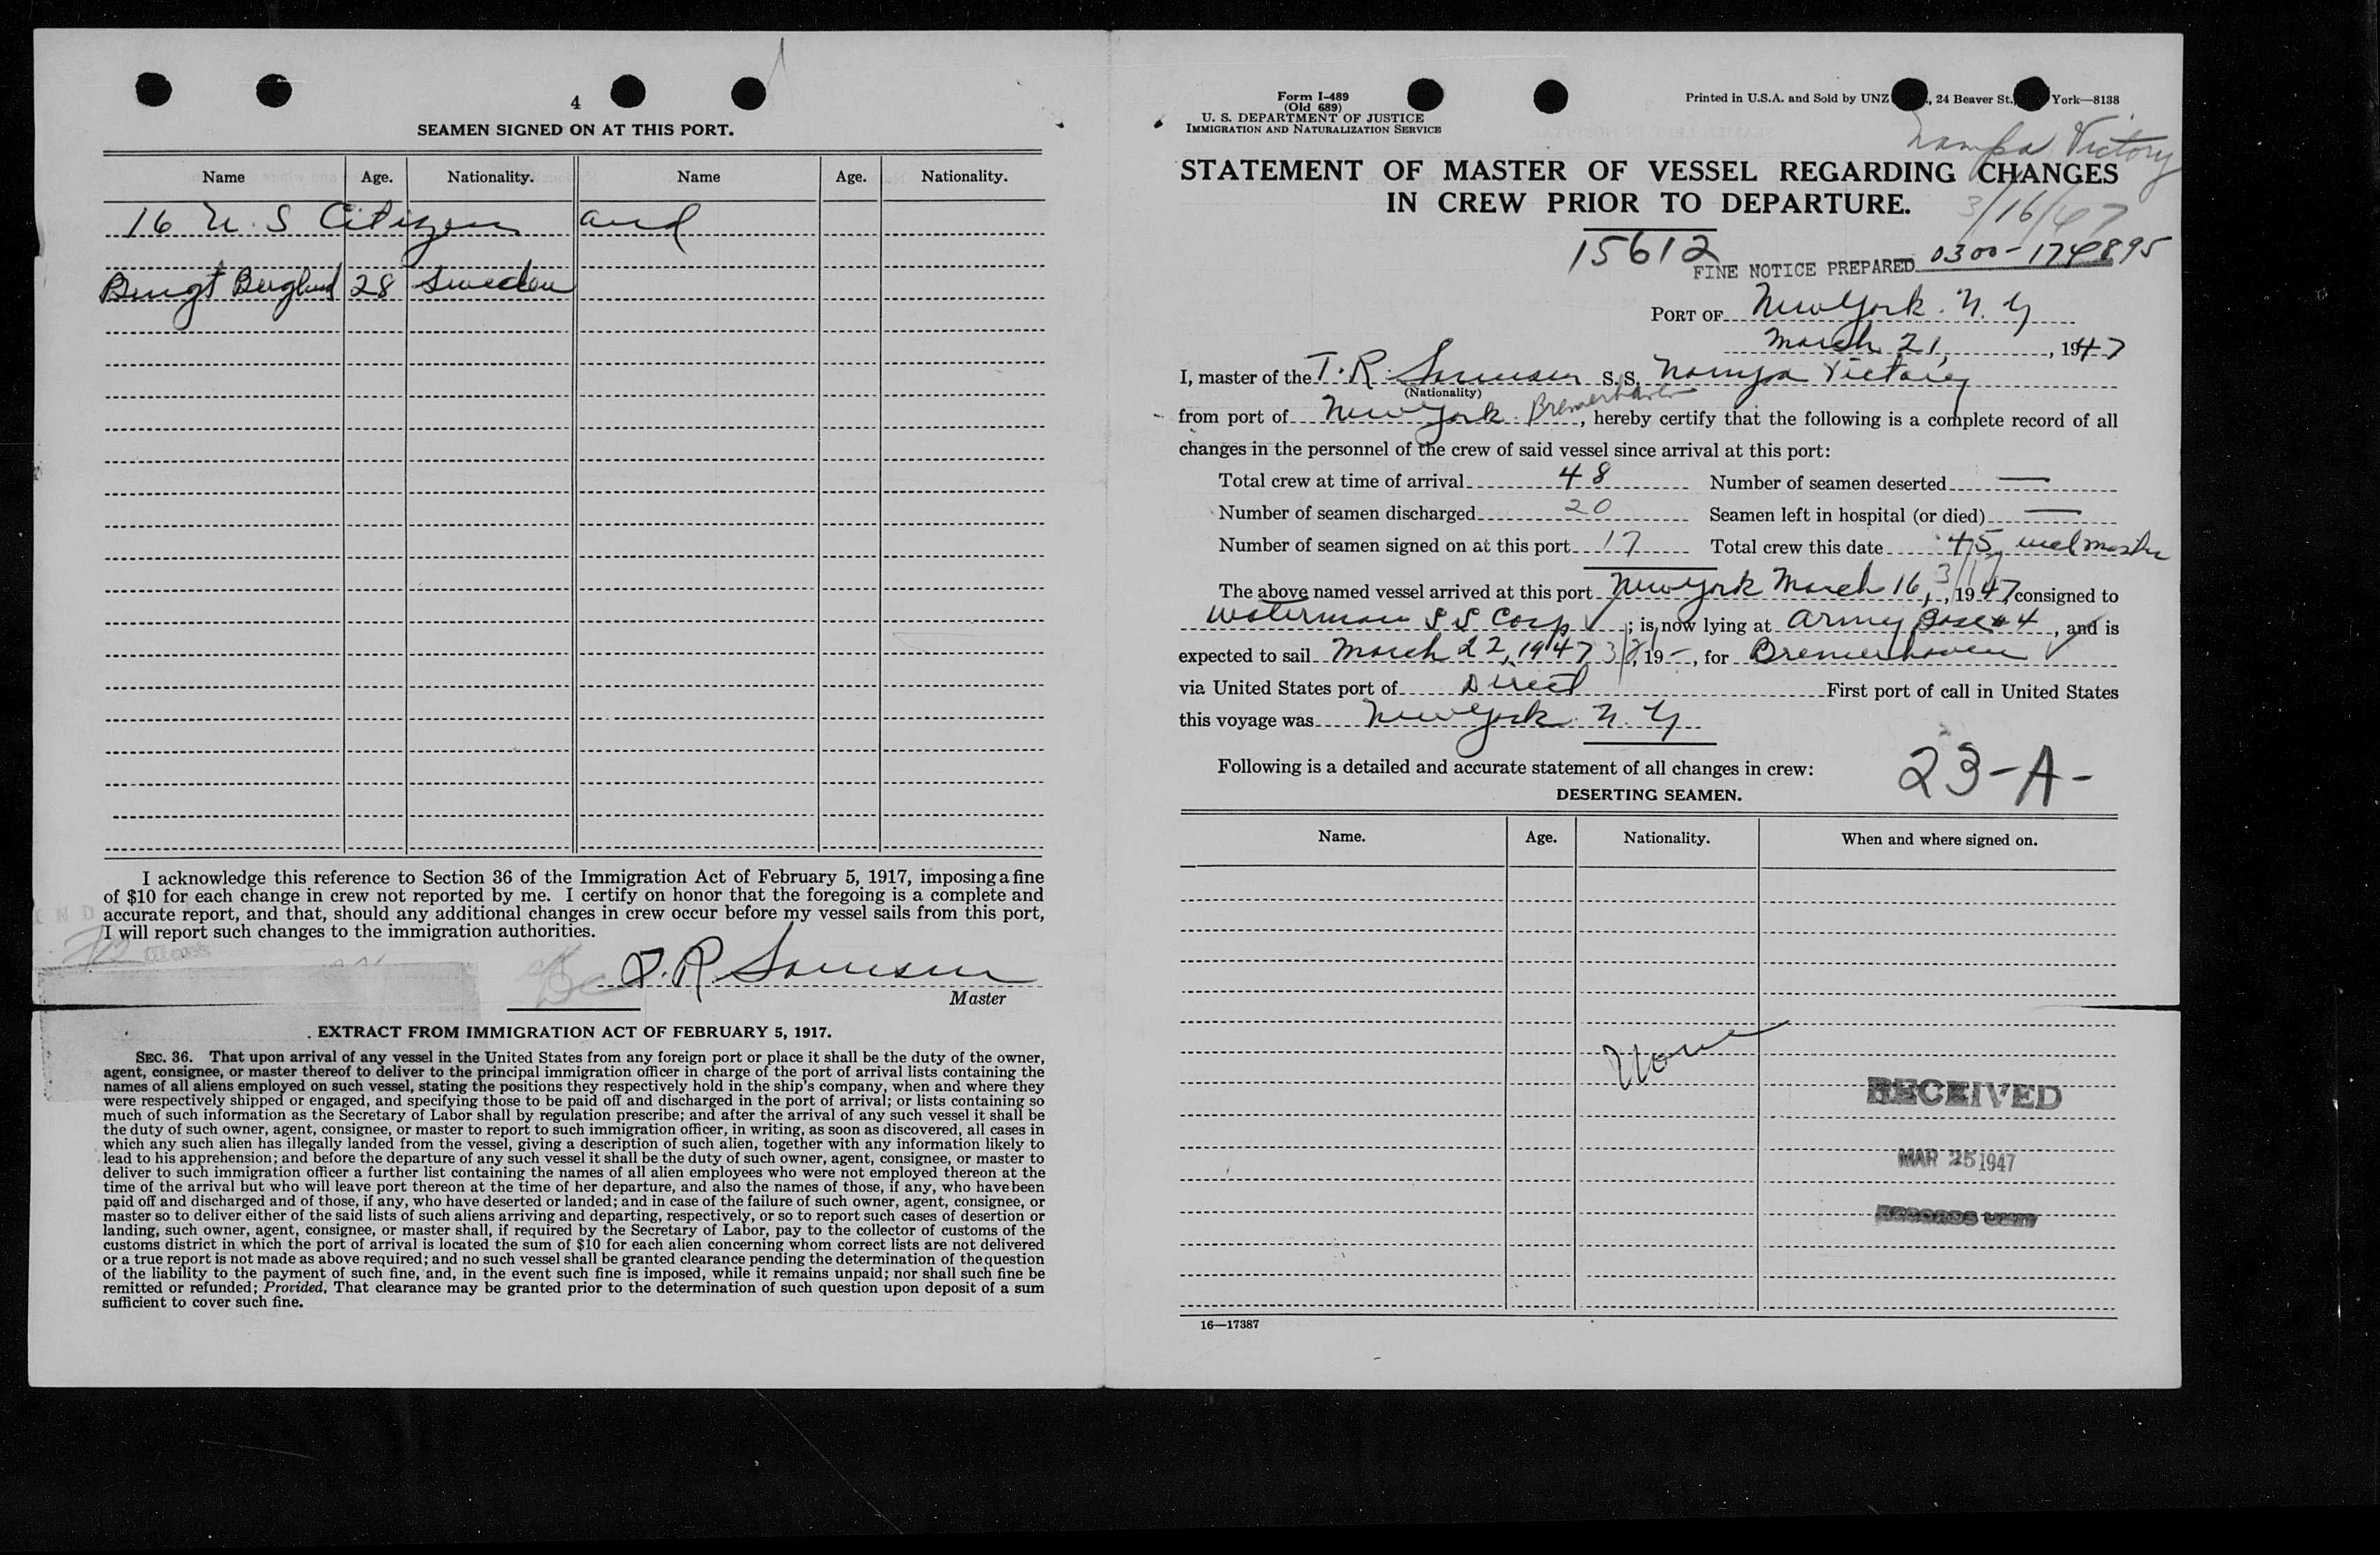 4
SEAMEN SIGNED ON AT THIS PORT.
Name Age. Nationality. Name Age. Nationality.
16 U. S Citizens and
Bengt Berglund 28 Sweden
I acknowledge this reference to Section 36 of the Immigration Act of February 5, 1917, imposing a fine
of $10 for each change in crew not reported by me. I certify on honor that the foregoing is a complete and
accurate report, and that, should any additional changes in crew occur before my vessel sails from this port,
I will report such changes to the immigration authorities.
T. R. Sorensen
Master
EXTRACT FROM IMMIGRATION ACT OF FEBRUARY 5, 1917.
SEC. 36. That upon arrival of any vessel in the United States from any foreign port or place it shall be the duty of the owner,
agent, consignee, or master thereof to deliver to the principal immigration officer in charge of the port of arrival lists containing the
names of all aliens employed on such vessel, stating the positions they respectively hold in the ship's company, when and where they
were respectively shipped or engaged, and specifying those to be paid off and discharged in the port of arrival; or lists containing so
much of such information as the Secretary of Labor shall by regulation prescribe; and after the arrival of any such vessel it shall be
the duty of such owner, agent, consignee, or master to report to such immigration officer, in writing, as soon as discovered, all cases in
which any such alien has illegally landed from the vessel, giving a description of such alien, together with any information likely to
lead to his apprehension; and before the departure of any such vessel it shall be the duty of such owner, agent, consignee, or master to
deliver to such immigration officer a further list containing the names of all alien employees who were not employed thereon at the
time of the arrival but who will leave port thereon at the time of her departure, and also the names of those, if any, who have been
paid off and discharged and of those, if any, who have deserted or landed; and in case of the failure of such owner, agent, consignee, or
master so to deliver either of the said lists of such aliens arriving and departing, respectively, or so to report such cases of desertion or
landing, such owner, agent, consignee, or master shall, if required by the Secretary of Labor, pay to the collector of customs of the
customs district in which the port of arrival is located the sum of $10 for each alien concerning whom correct lists are not delivered
or a true report is not made as above required; and no such vessel shall be granted clearance pending the determination of the question
of the liability to the payment of such fine, and, in the event such fine is imposed, while it remains unpaid; nor shall such fine be
remitted or refunded; Provided, That clearance may be granted prior to the determination of such question upon deposit of a sum
sufficient to cover such fine.
Form I-489
(Old 689)
U. S. DEPARTMENT OF JUSTICE
IMMIGRATION AND NATURALIZATION SERVICE
Printed in U.S.A. and Sold by UNZ , 24 Beaver St., York—8138
Nampa Victory
STATEMENT OF MASTER OF VESSEL REGARDING CHANGES
IN CREW PRIOR TO DEPARTURE.
3/16/47
15612
FINE NOTICE PREPARED 0300-174895
PORT OF New York. N. Y
March 21, , 1947
I, master of the T. R. Sorensen S. S. Nampa Victory
(Nationality)
from port of New York Bremerhaven, hereby certify that the following is a complete record of all
changes in the personnel of the crew of said vessel since arrival at this port:
Total crew at time of arrival 48 Number of seamen deserted —
Number of seamen discharged 20 Seamen left in hospital (or died) —
Number of seamen signed on at this port 17 Total crew this date 45 incl master
The above named vessel arrived at this port New York March 16, , 1947, consigned to
Waterman S S Corp ; is now lying at Army Base #4, and is
expected to sail March 22, 1947, 19—, for Bremerhaven
via United States port of Direct First port of call in United States
this voyage was New York. N. Y
Following is a detailed and accurate statement of all changes in crew:
23-A-
DESERTING SEAMEN.
Name. Age. Nationality. When and where signed on.
None
RECEIVED
MAR 25 1947
RECORDS UNIT
16—17387